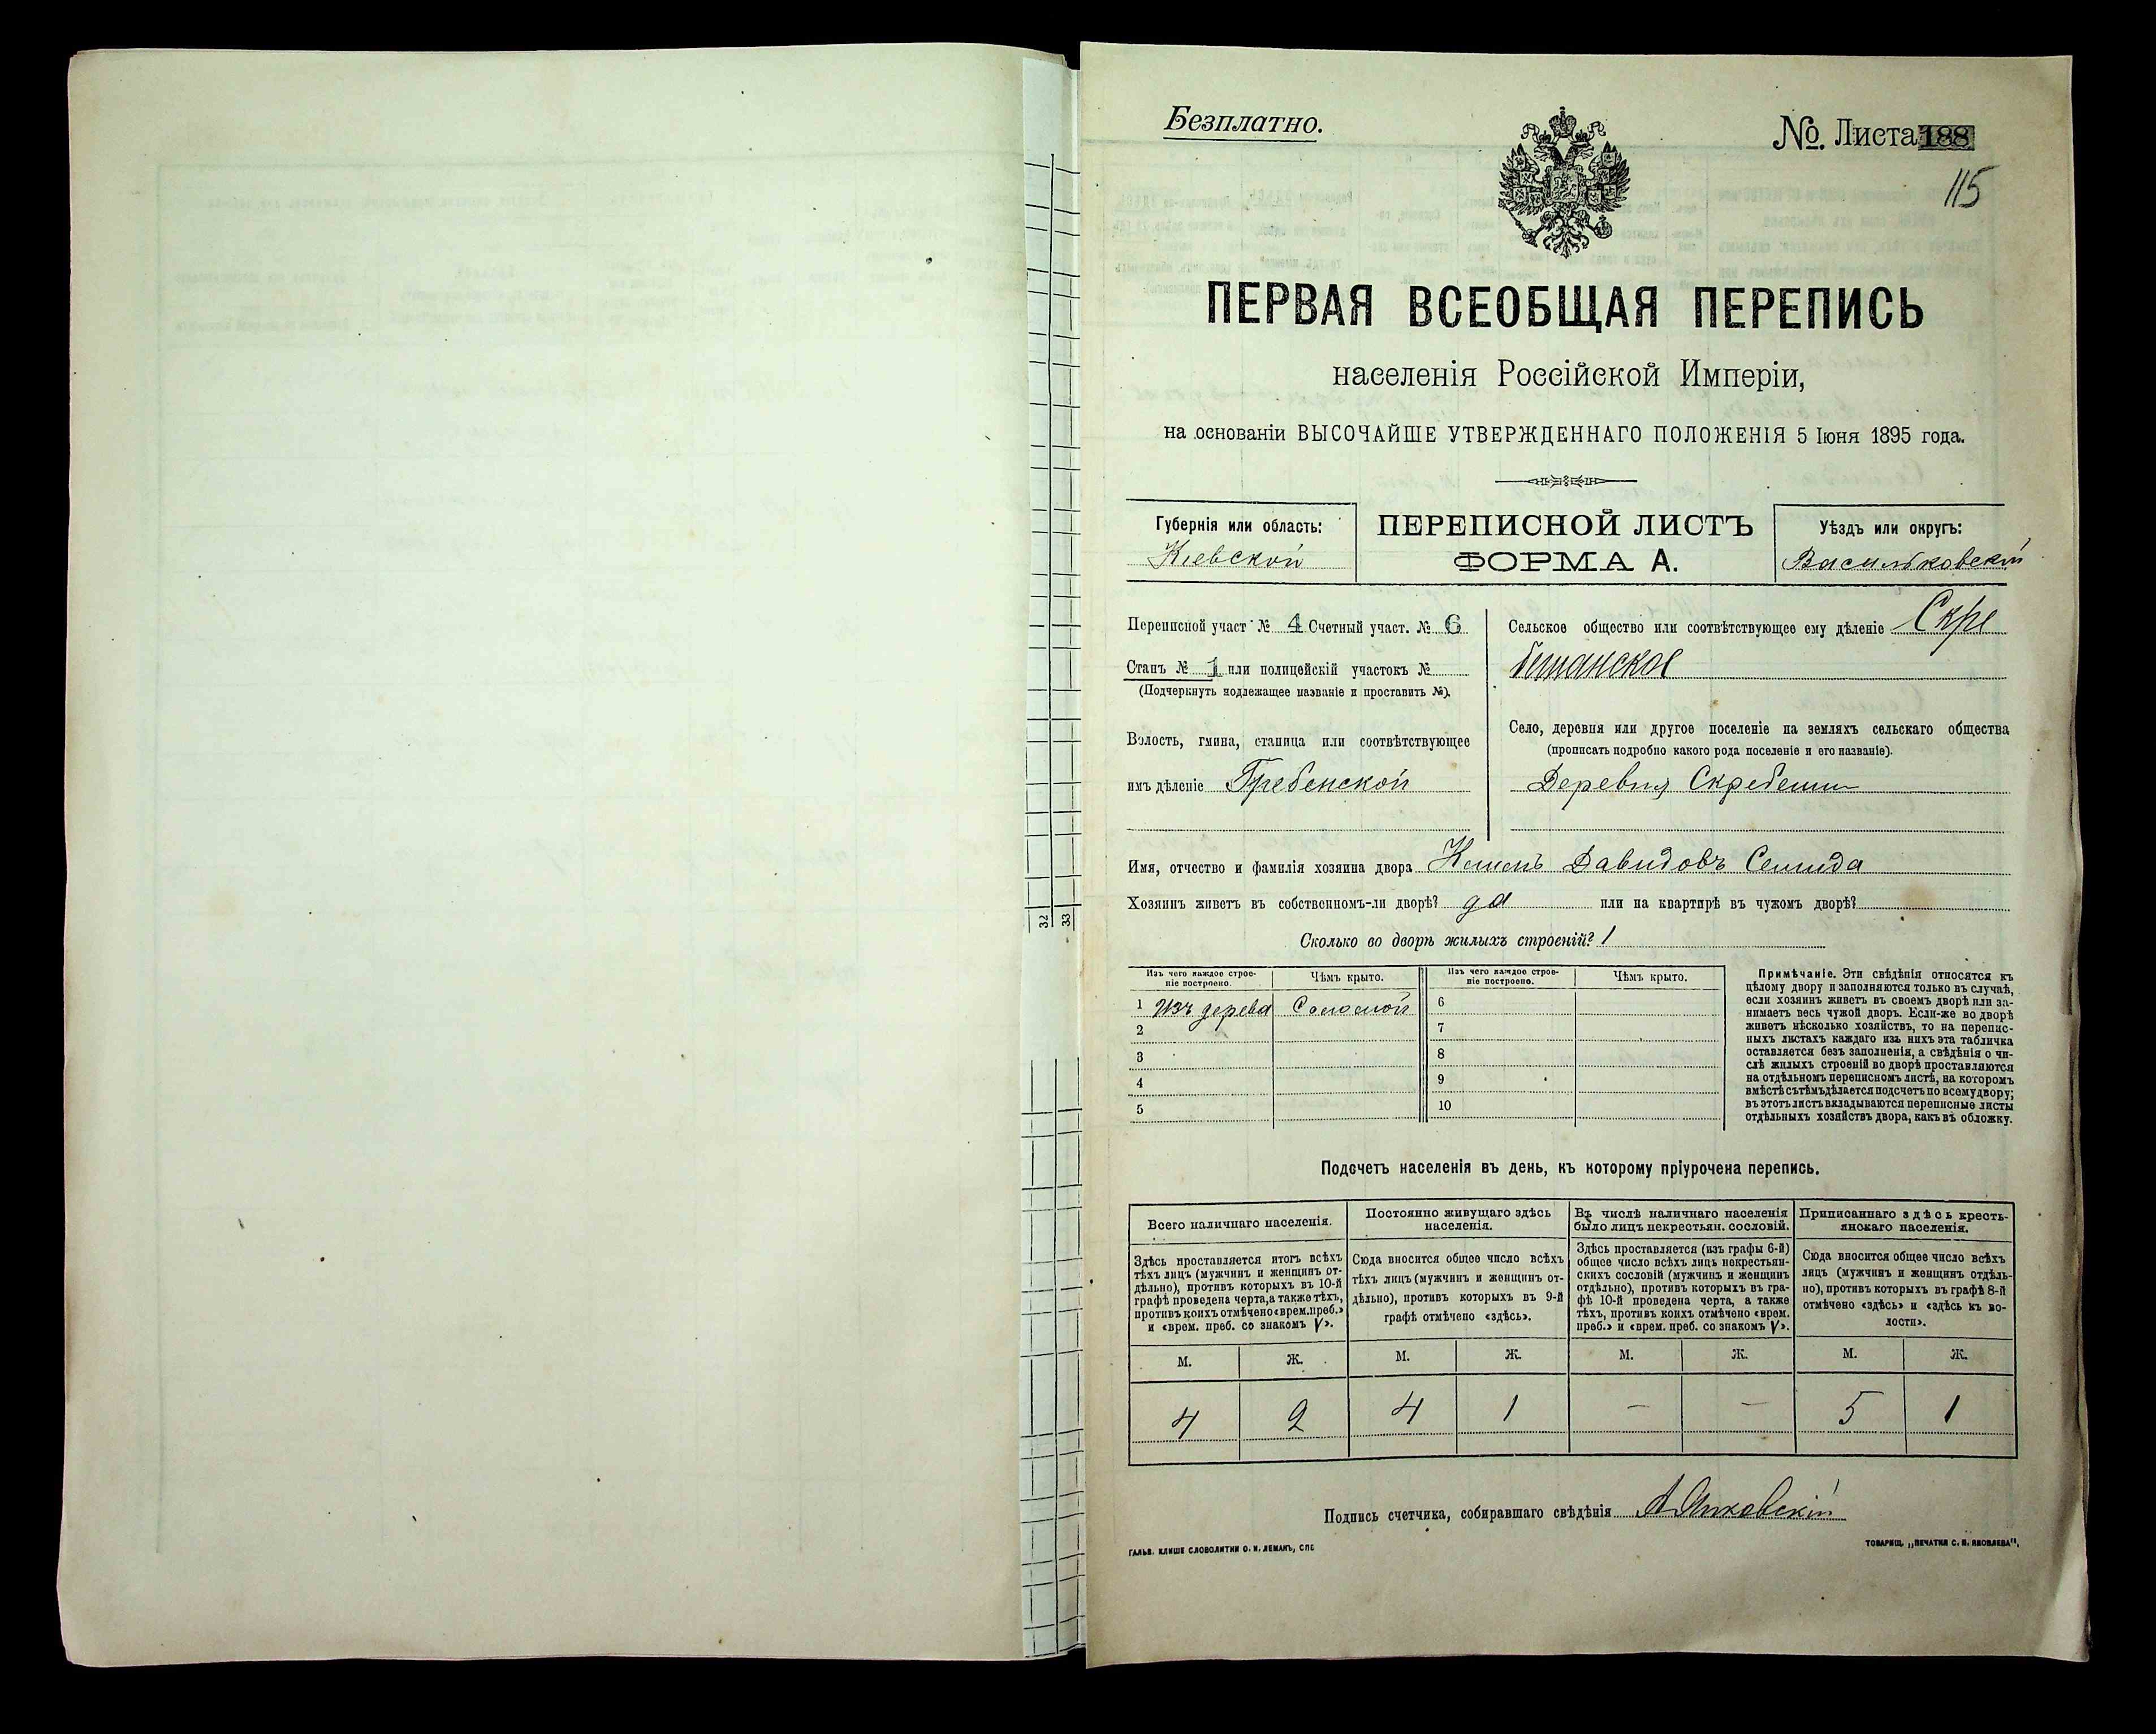 Безплатно.
№. Листа 188
115
ПЕРВАЯ ВСЕОБЩАЯ ПЕРЕПИСЬ
населенія Россійской Имперіи,
на основаніи ВЫСОЧАЙШЕ УТВЕРЖДЕННАГО ПОЛОЖЕНІЯ 5 Іюня 1895 года.
Губернія или область:
Кіевской
ПЕРЕПИСНОЙ ЛИСТЪ
ФОРМА А.
Уѣздъ или округъ:
Васильковскій
Переписной участ № 4 Счетный участ. № 6
Станъ № 1 или полицейскій участокъ №
(Подчеркнуть подлежащее названіе и проставить №).
Волость, гмина, станица или соотвѣтствующее
имъ дѣленіе Гребенской
Сельское общество или соотвѣтствующее ему дѣленіе Скре
бешанское
Село, деревня или другое поселеніе на земляхъ сельскаго общества
(прописать подробно какого рода поселеніе и его названіе).
Деревня Скребеши
Имя, отчество и фамилія хозяина двора Давидовъ Семида
Хозяинъ живетъ въ собственномъ-ли дворѣ? да или на квартирѣ въ чужомъ дворѣ?
Сколько во дворѣ жилыхъ строеній? 1
Изъ чего каждое строе-
ніе построено.
Чѣмъ крыто.
1 Изъ дерева Соломой
2
3
4
5
Изъ чего каждое строе-
ніе построено.
Чѣмъ крыто.
6
7
8
9
10
Примѣчаніе. Эти свѣдѣнія относятся къ
цѣлому двору и заполняются только въ случаѣ,
если хозяинъ живетъ въ своемъ дворѣ или за-
нимаетъ весь чужой дворъ. Если-же во дворѣ
живетъ нѣсколько хозяйствъ, то на перепис-
ныхъ листахъ каждаго изъ нихъ эта табличка
оставляется безъ заполненія, а свѣдѣнія о чи-
слѣ жилыхъ строеній во дворѣ проставляются
на отдѣльномъ переписномъ листѣ, на которомъ
вмѣстѣ съ тѣмъ дѣлается подсчетъ по всему двору;
въ этотъ листъ вкладываются переписные листы
отдѣльныхъ хозяйствъ двора, какъ въ обложку.
Подсчетъ населенія въ день, къ которому пріурочена перепись.
Всего наличнаго населенія.
Здѣсь проставляется итогъ всѣхъ
тѣхъ лицъ (мужчинъ и женщинъ от-
дѣльно), противъ которыхъ въ 10-й
графѣ проведена черта, а также тѣхъ,
противъ коихъ отмѣчено «врем. преб.»
и «врем. преб. со знакомъ V».
Постоянно живущаго здѣсь
населенія.
Сюда вносится общее число всѣхъ
тѣхъ лицъ (мужчинъ и женщинъ от-
дѣльно), противъ которыхъ въ 9-й
графѣ отмѣчено «здѣсь».
Въ числѣ наличнаго населенія
было лицъ некрестьян. сословій.
Здѣсь проставляется (изъ графы 6-й)
общее число всѣхъ лицъ некрестьян-
скихъ сословій (мужчинъ и женщинъ
отдѣльно), противъ которыхъ въ гра-
фѣ 10-й проведена черта, а также
тѣхъ, противъ коихъ отмѣчено «врем.
преб.» и «врем. преб. со знакомъ V».
Приписаннаго здѣсь кресть-
янскаго населенія.
Сюда вносится общее число всѣхъ
лицъ (мужчинъ и женщинъ отдѣль-
но), противъ которыхъ въ графѣ 8-й
отмѣчено «здѣсь» и «здѣсь къ во-
лости».
М. Ж. М. Ж. М. Ж. М. Ж.
4 2 4 1 — — 5 1
Подпись счетчика, собиравшаго свѣдѣнія
ГАЛЬВ. КЛИШЕ СЛОВОЛИТНИ О. И. ЛЕМАНЪ, СПБ
ТОВАРИЩ. „ПЕЧАТНЯ С. П. ЯКОВЛЕВА",
32
33